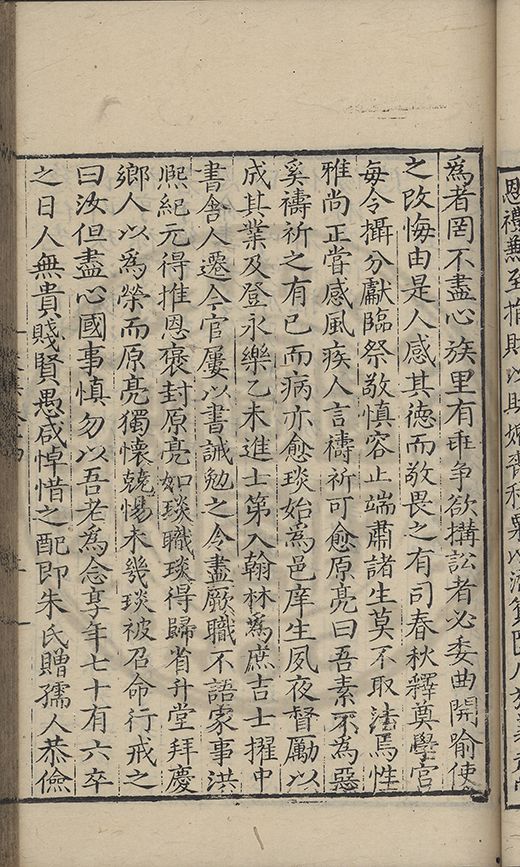 恩禮至財以助
爲者罔不盡心族里有乖爭欲搆訟者必委曲開喻使
之改悔由是人感其德而敬畏之有司春秋釋奠學官
每令攝分獻臨祭敬慎容止端肅諸生莫不取法焉性
雅尚正嘗感風疾人言禱祈可愈原亮曰吾素不為惡
奚禱祈之有已而病亦愈琰始為邑庠生夙夜督勵以
成其業及登永樂乙未進士第入翰林為庶吉士擢中
書舍人遷今官屢以書誡勉之令盡厥職不語家事洪
熈紀元得推恩褒封原亮如琰職琰得歸省升堂拜慶
鄉人以為榮而原亮獨懷兢惕未幾琰被召命行戒之
曰汝但盡心國事慎勿以吾老為念享年七十有六卒
之日人無貴賤賢愚咸悼惜之配即朱氏贈孺人恭儉